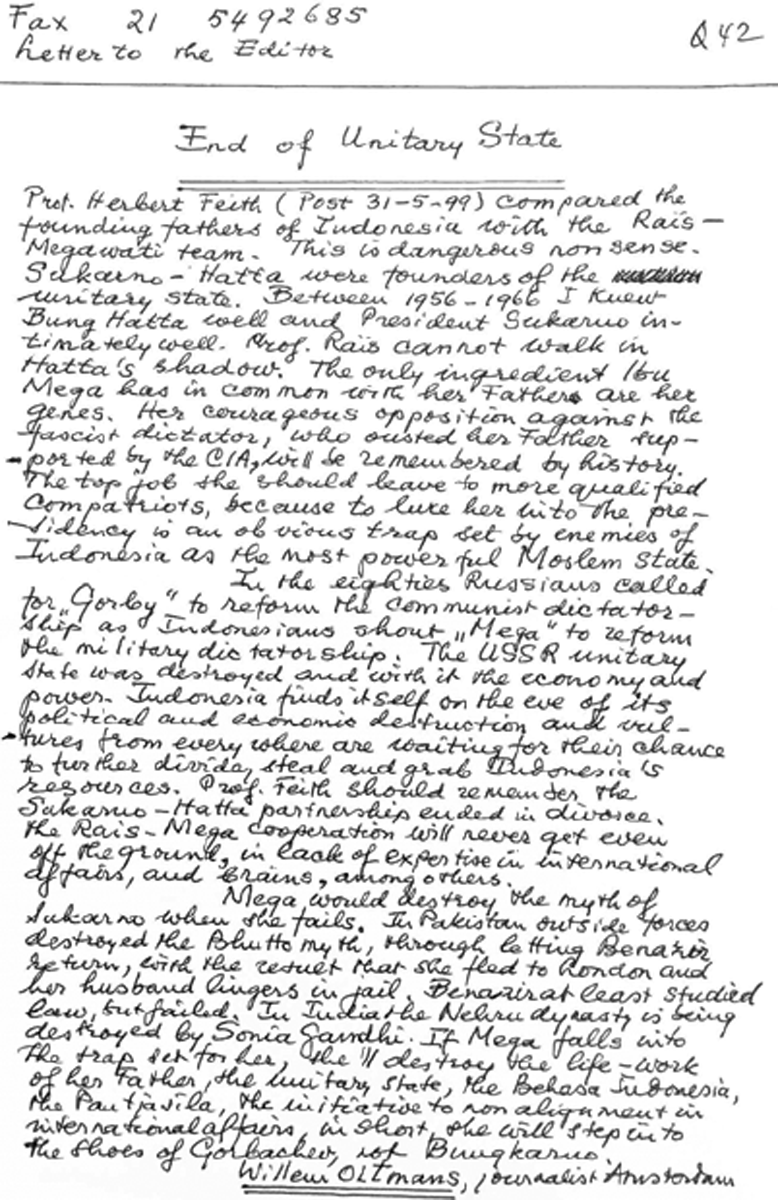 Fax 21 5492685
Letter to the Editor
Q42
End of Unitary State
Prof. Herbert Feith (Post 31-5-99) compared the
founding fathers of Indonesia with the Rais-
Megawati team. This is dangerous nonsense.
Sukarno-Hatta were founders of the
unitary state. Between 1956-1966 I knew
Bung Hatta well and President Sukarno in-
timately well. Prof. Rais cannot walk in
Hatta's shadow. The only ingredient Ibu
Mega has in common with her Father are her
genes. Her courageous opposition against the
fascist dictator, who ousted her Father sup-
ported by the CIA, will be remembered by history.
The top job she should leave to more qualified
compatriots, because to lure her into the pre-
sidency is an obvious trap set by enemies of
Indonesia as the most powerful Moslem State.
In the eighties Russians called
for „Gorby" to reform the communist dictator-
ship as Indonesians shout „Mega" to reform
the military dictatorship. The USSR unitary
state was destroyed and with it the economy and
power. Indonesia finds itself on the eve of its
political and economic destruction and vul-
tures from everywhere are waiting for their chance
to further divide, steal and grab Indonesia's
resources. Prof. Feith should remember the
Sukarno-Hatta partnership ended in divorce.
the Rais-Mega cooperation will never get even
off the ground, in lack of expertise in international
affairs, and brains, among others.
Mega would destroy the myth of
Sukarno when she fails. In Pakistan outside forces
destroyed the Bhutto myth, through letting Benazir
return, with the result that she fled to London and
her husband lingers in jail. Benazir at least studied
law, but failed. In India the Nehru dynasty is being
destroyed by Sonia Gandhi. If Mega falls into
the trap set for her, she'll destroy the life-work
of her Father, the unitary state, the Bahasa Indonesia,
the Pantjasila, the initiative to non alignment in
international affairs, in short, she will step into
the shoes of Gorbachev, not Bungkarno.
Willem Oltmans, journalist Amsterdam